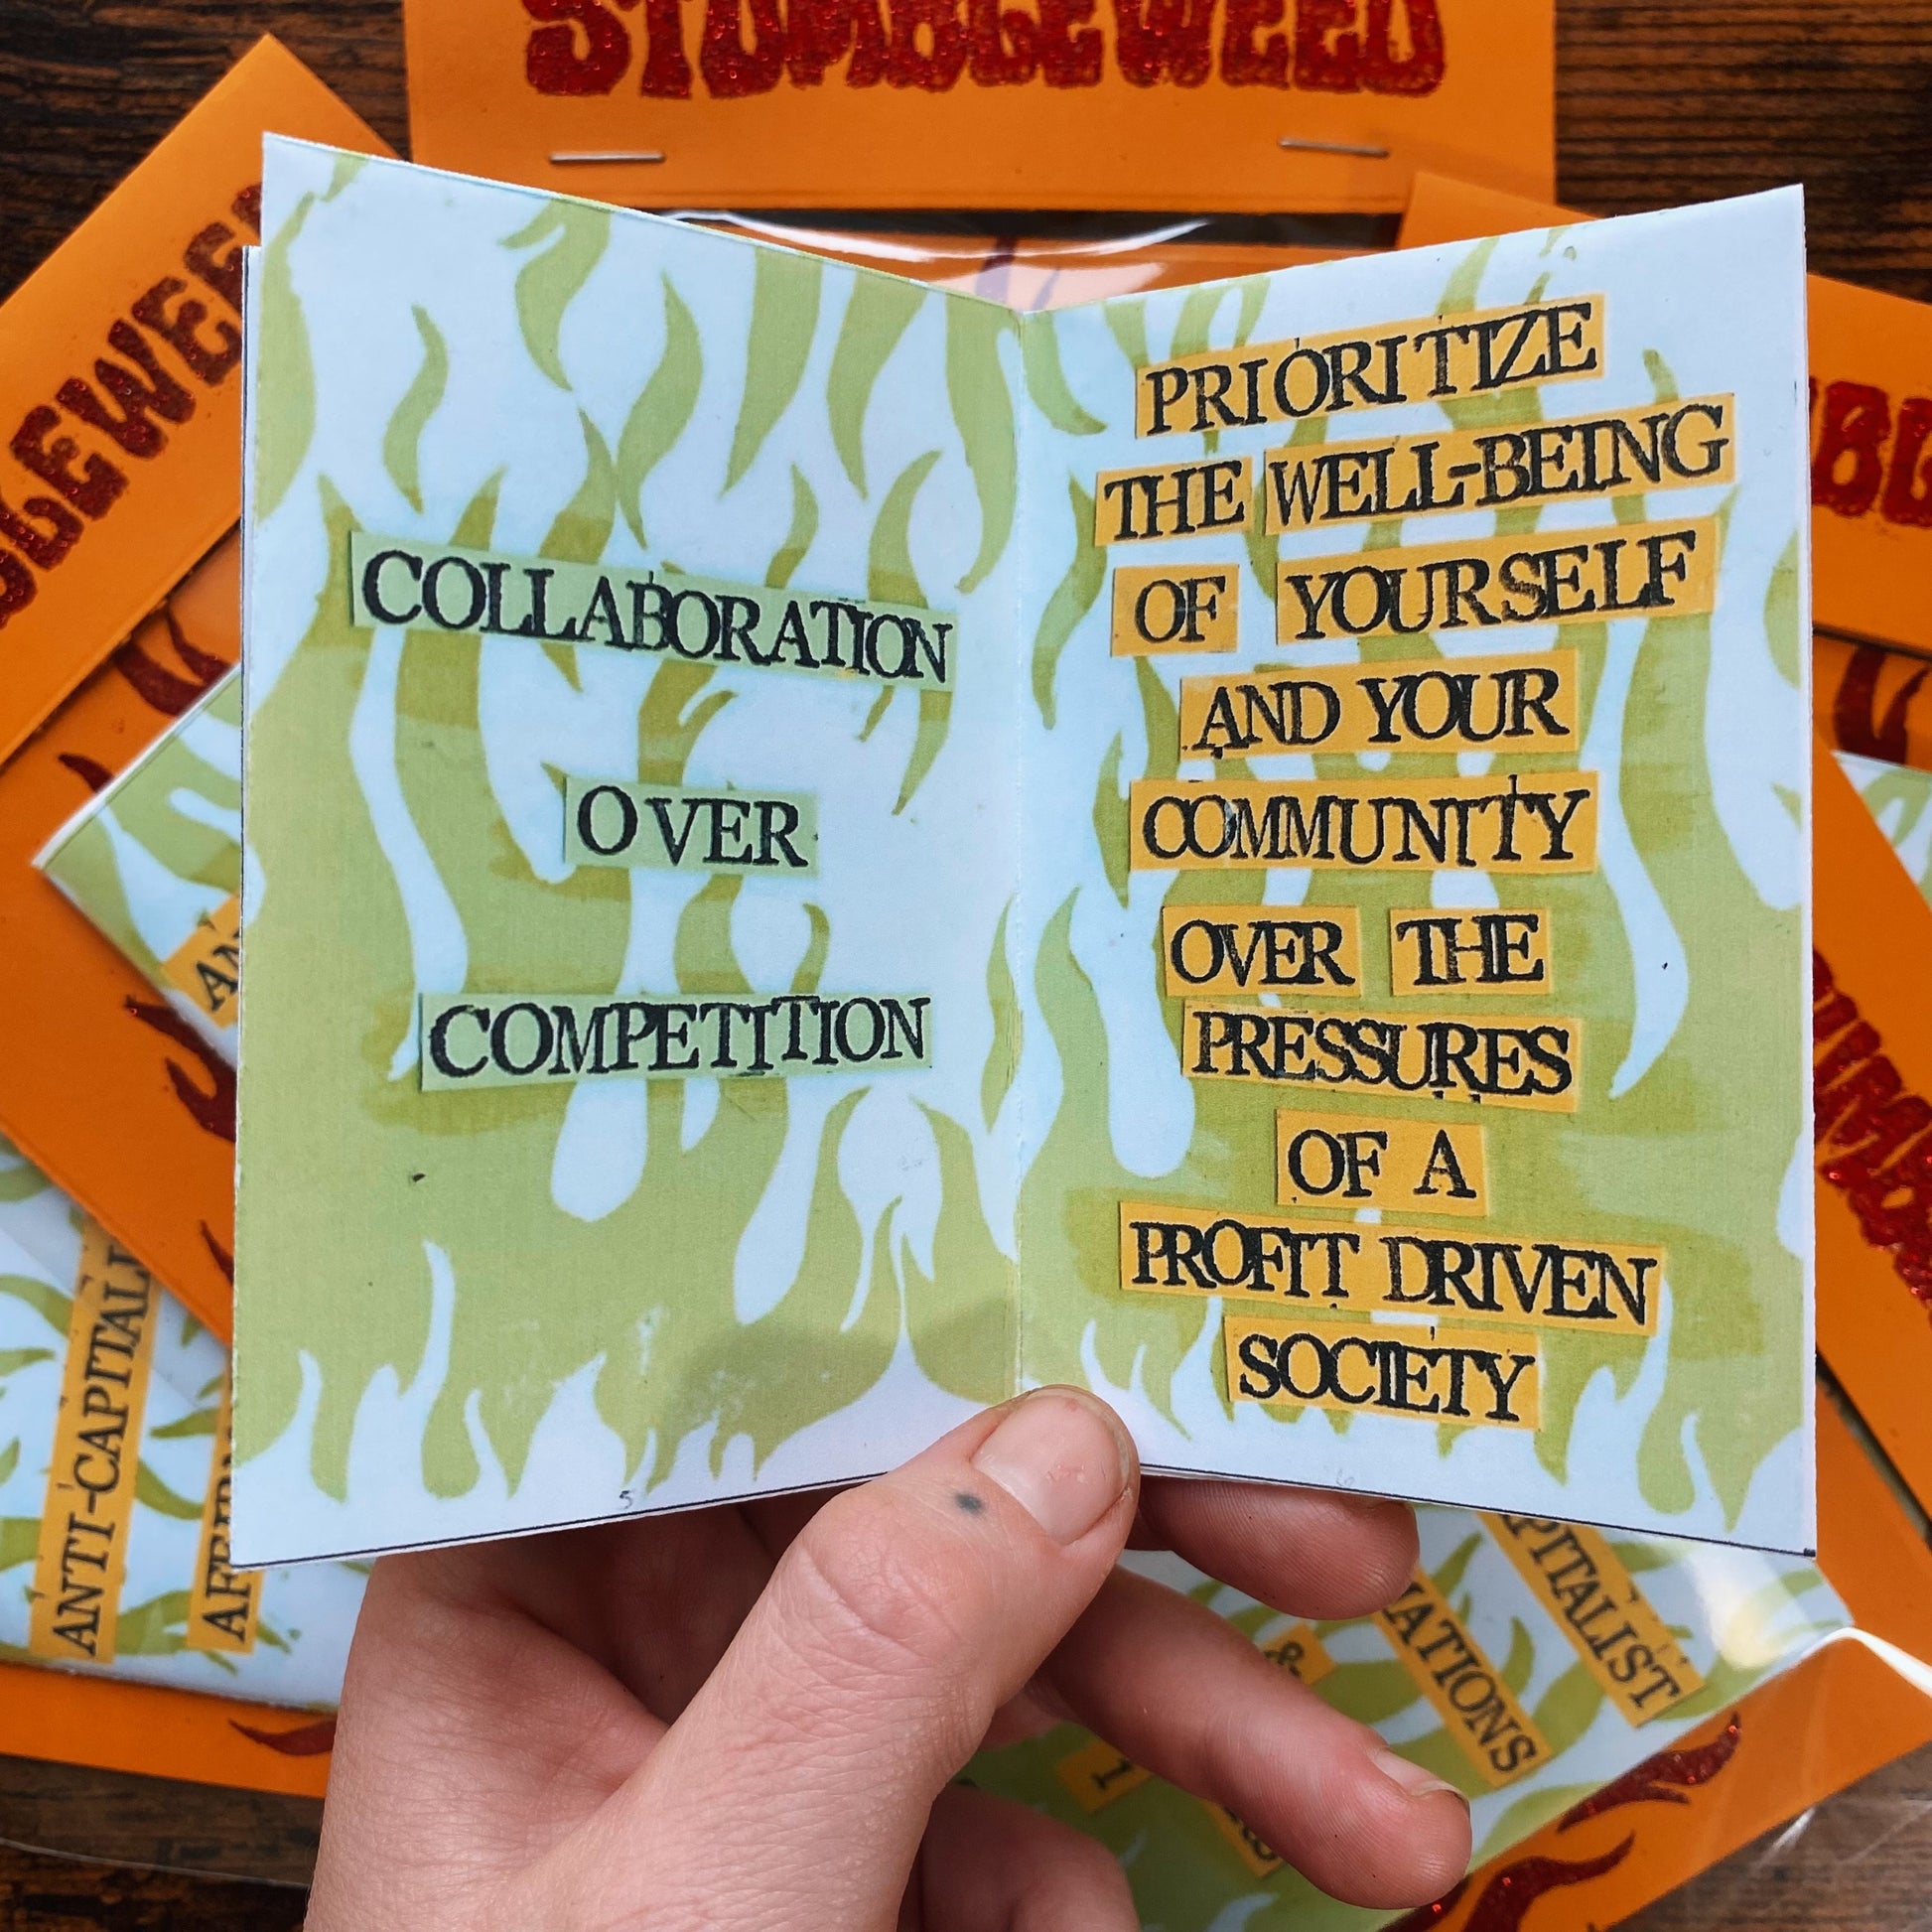 STUMBLEWEED
COLLABORATION
OVER
COMPETITION
5
PRIORITIZE
THE WELL-BEING
OF YOURSELF
AND YOUR
COMMUNITY
OVER THE
PRESSURES
OF A
PROFIT DRIVEN
SOCIETY
6
ANTI-CAPITALI
&